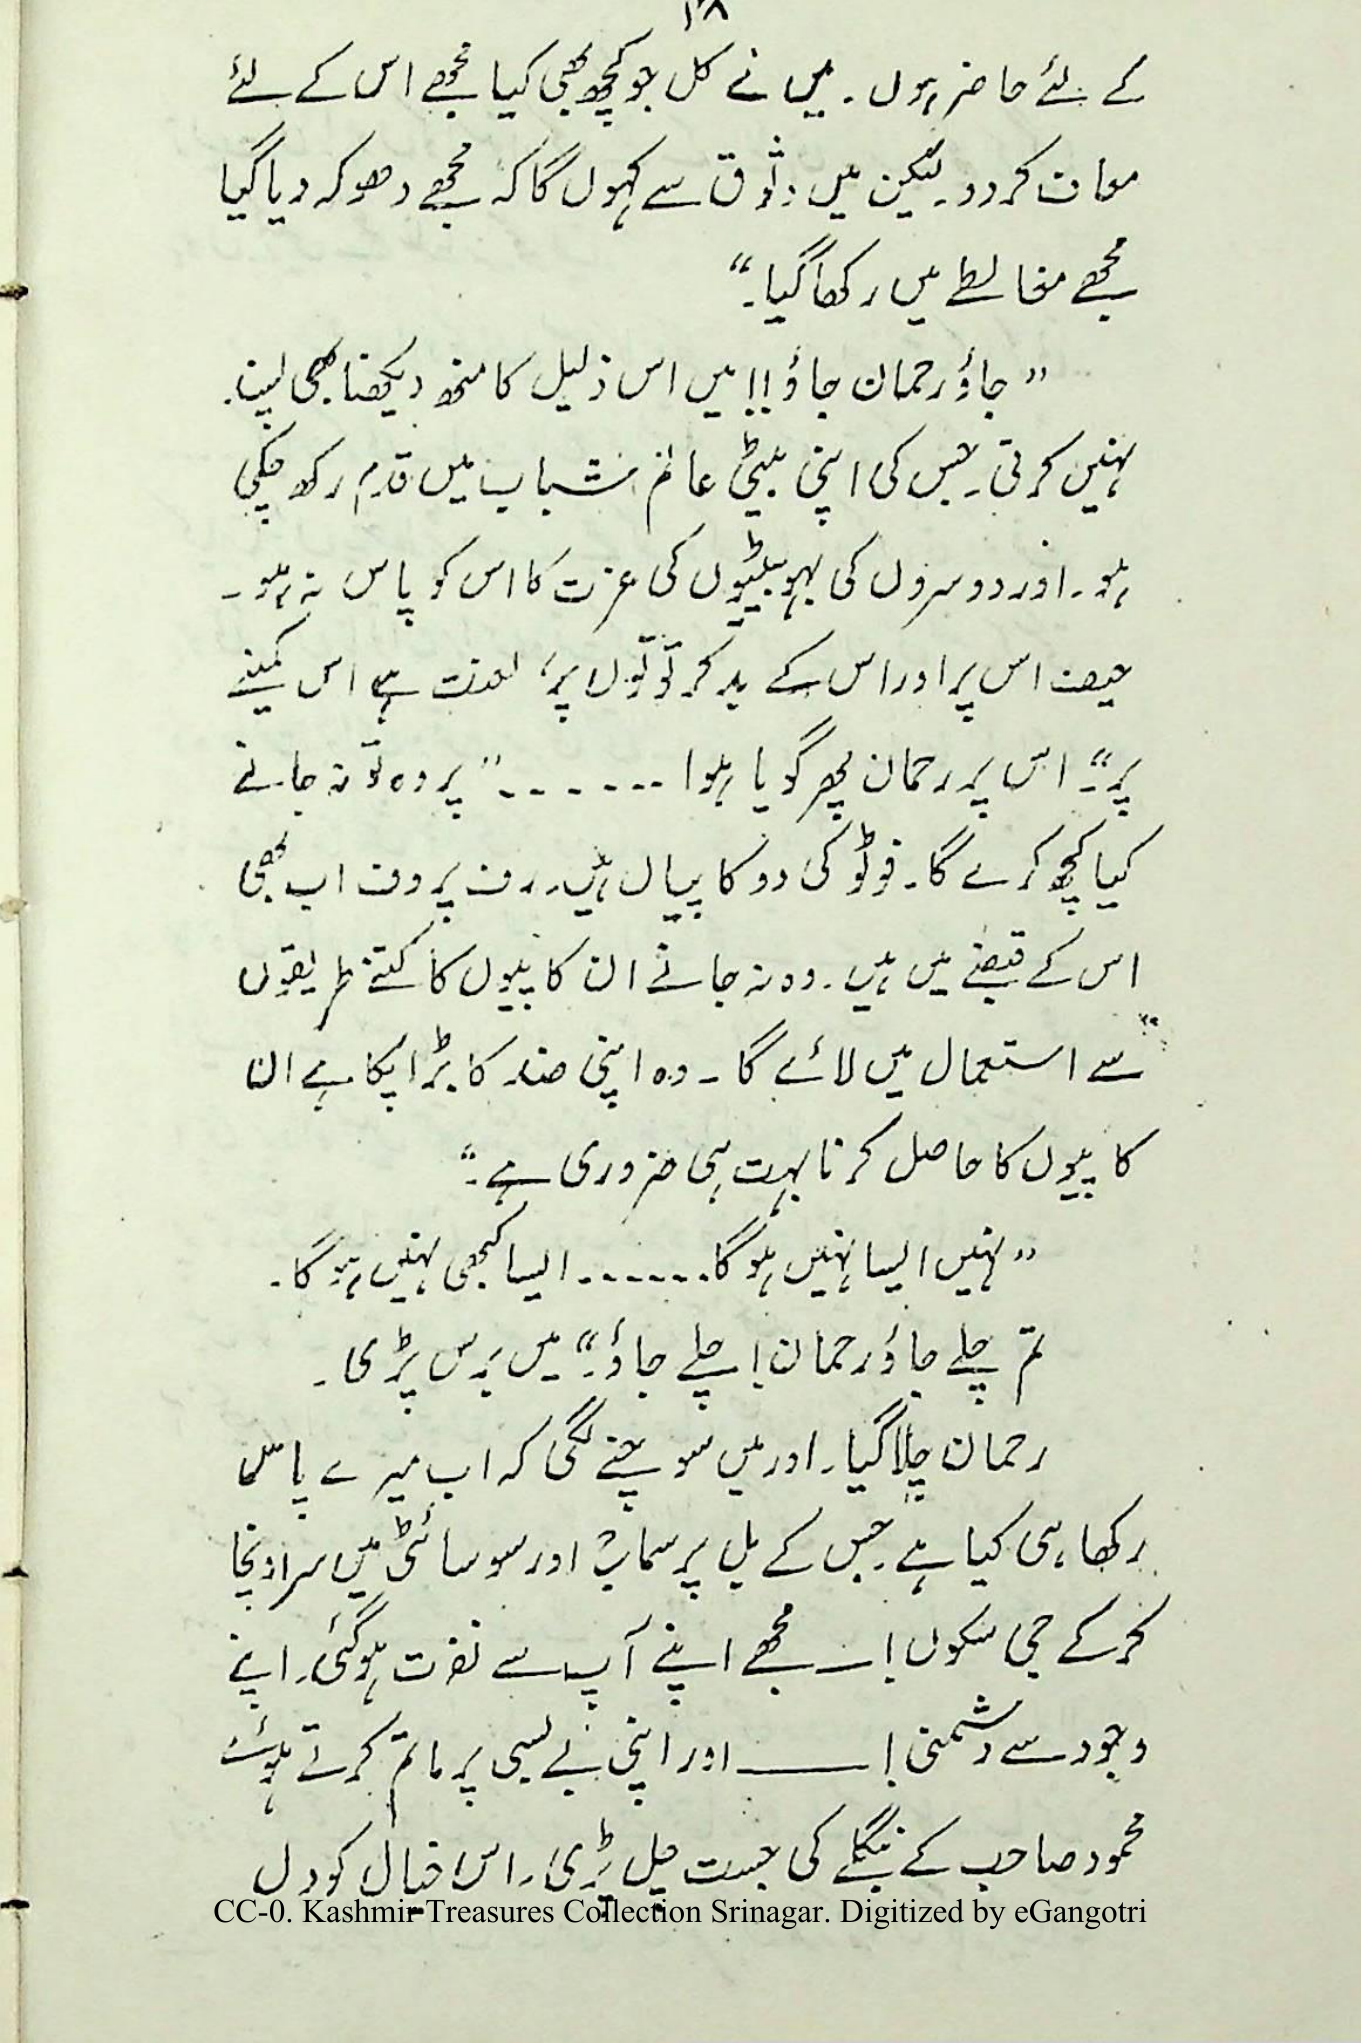 ۱۸
کے لئے حاضر ہوں۔ میں نے کل جو کچھ بھی کیا مجھے اس کے لئے
معاف کر دو۔ لیکن میں وثوق سے کہوں گا کہ مجھے دھوکہ دیا گیا
مجھے مغالطے میں رکھا گیا۔“
”جاؤ رحمان جاؤ!! میں اس ذلیل کا منھ دیکھنا بھی پسند
نہیں کرتی۔ جس کی اپنی بیٹی عالم شباب میں قدم رکھ چکی
ہو۔ اور دوسروں کی بہو بیٹیوں کی عزت کا اس کو پاس نہ ہو۔
حیف اس پر اور اس کے بد کرتوتوں پر، لعنت ہے اس کمینے
پر“۔ اس پر رحمان پھر گویا ہوا ۔۔۔۔۔۔ ”پر وہ تو نہ جانے
کیا کچھ کرے گا۔ فوٹو کی دو کاپیاں ہیں۔ رف پروف اب بھی
اس کے قبضے میں ہیں۔ وہ نہ جانے ان کاپیوں کا کتنے طریقوں
سے استعمال میں لائے گا۔ وہ اپنی ضد کا بڑا پکا ہے ان
کاپیوں کا حاصل کرنا بہت ہی ضروری ہے۔“
”نہیں ایسا نہیں ہو گا۔۔۔۔۔۔ ایسا کبھی نہیں ہو گا۔
تم چلے جاؤ رحمان! چلے جاؤ۔“ میں برس پڑی۔
رحمان چلا گیا۔ اور میں سوچنے لگی کہ اب میرے پاس
رکھا ہی کیا ہے۔ جس کے بل پر سماج اور سوسائٹی میں سر اونچا
کر کے جی سکوں! ــ مجھے اپنے آپ سے نفرت ہو گئی۔ اپنے
وجود سے دشمنی! ــــــ اور اپنی بے بسی پر ماتم کرتے ہوئے
محمود صاحب کے بنگلے کی جست چل پڑی۔ اس خیال کو دل
CC-0. Kashmir Treasures Collection Srinagar. Digitized by eGangotri